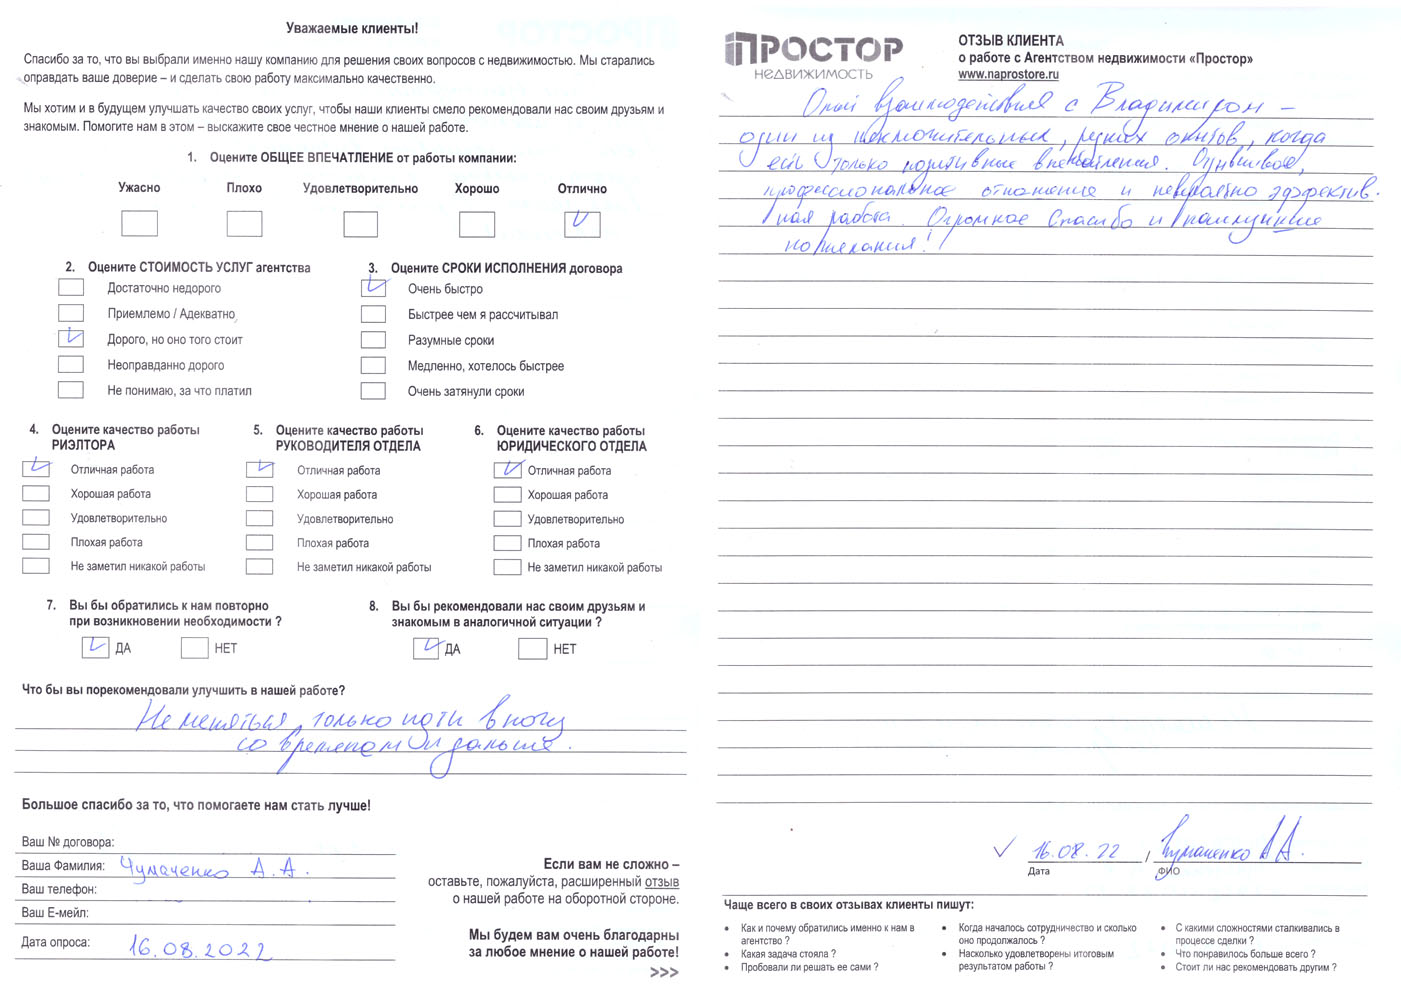 Уважаемые клиенты!
Спасибо за то, что вы выбрали именно нашу компанию для решения своих вопросов с недвижимостью. Мы старались
оправдать ваше доверие – и сделать свою работу максимально качественно.
Мы хотим и в будущем улучшать качество своих услуг, чтобы наши клиенты смело рекомендовали нас своим друзьям и
знакомым. Помогите нам в этом – выскажите свое честное мнение о нашей работе.
1. Оцените ОБЩЕЕ ВПЕЧАТЛЕНИЕ от работы компании:
Ужасно Плохо Удовлетворительно Хорошо Отлично
2. Оцените СТОИМОСТЬ УСЛУГ агентства
Достаточно недорого
Приемлемо / Адекватно
Дорого, но оно того стоит
Неоправданно дорого
Не понимаю, за что платил
3. Оцените СРОКИ ИСПОЛНЕНИЯ договора
Очень быстро
Быстрее чем я рассчитывал
Разумные сроки
Медленно, хотелось быстрее
Очень затянули сроки
4. Оцените качество работы
РИЭЛТОРА
Отличная работа
Хорошая работа
Удовлетворительно
Плохая работа
Не заметил никакой работы
5. Оцените качество работы
РУКОВОДИТЕЛЯ ОТДЕЛА
Отличная работа
Хорошая работа
Удовлетворительно
Плохая работа
Не заметил никакой работы
6. Оцените качество работы
ЮРИДИЧЕСКОГО ОТДЕЛА
Отличная работа
Хорошая работа
Удовлетворительно
Плохая работа
Не заметил никакой работы
7. Вы бы обратились к нам повторно
при возникновении необходимости ?
ДА НЕТ
8. Вы бы рекомендовали нас своим друзьям и
знакомым в аналогичной ситуации ?
ДА НЕТ
Что бы вы порекомендовали улучшить в нашей работе?
Не меняться, только идти в ногу
со временем и дальше.
Большое спасибо за то, что помогаете нам стать лучше!
Ваш № договора:
Ваша Фамилия: Чумаченко А.А.
Ваш телефон:
Ваш Е-мейл:
Дата опроса: 16.08.2022
Если вам не сложно –
оставьте, пожалуйста, расширенный отзыв
о нашей работе на оборотной стороне.
Мы будем вам очень благодарны
за любое мнение о нашей работе!
>>>
ПРОСТОР
НЕДВИЖИМОСТЬ
ОТЗЫВ КЛИЕНТА
о работе с Агентством недвижимости «Простор»
www.naprostore.ru
Опыт взаимодействия с Владимиром –
один из исключительных, редких опытов, когда
есть только позитивные впечатления. Отзывчивое,
профессиональное отношение и невероятно эффектив-
ная работа. Огромное спасибо и наилучшие
пожелания!
16.08.22 / Чумаченко А.А.
Дата ФИО
Чаще всего в своих отзывах клиенты пишут:
• Как и почему обратились именно к нам в
агентство ?
• Какая задача стояла ?
• Пробовали ли решать ее сами ?
• Когда началось сотрудничество и сколько
оно продолжалось ?
• Насколько удовлетворены итоговым
результатом работы ?
• С какими сложностями сталкивались в
процессе сделки ?
• Что понравилось больше всего ?
• Стоит ли нас рекомендовать другим ?